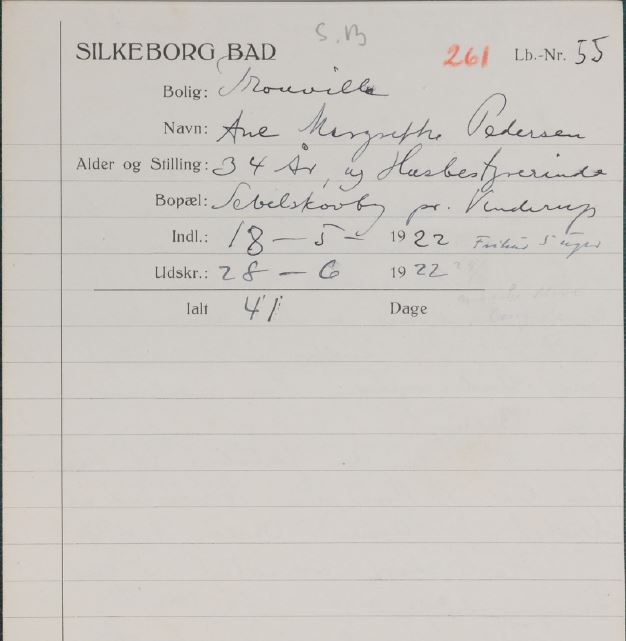 S.B
SILKEBORG BAD 261 Lb.-Nr. 55
Bolig: Trouville
Navn: Ane Margrethe Pedersen
Alder og Stilling: 34 År, og Husbestyrerinde
Bopæl: Sevelskovby pr. Vinderup
Indl.: 18 — 5 — 1922 Frikur 5 uger
Udskr.: 28 — 6 1922
Ialt 41 Dage